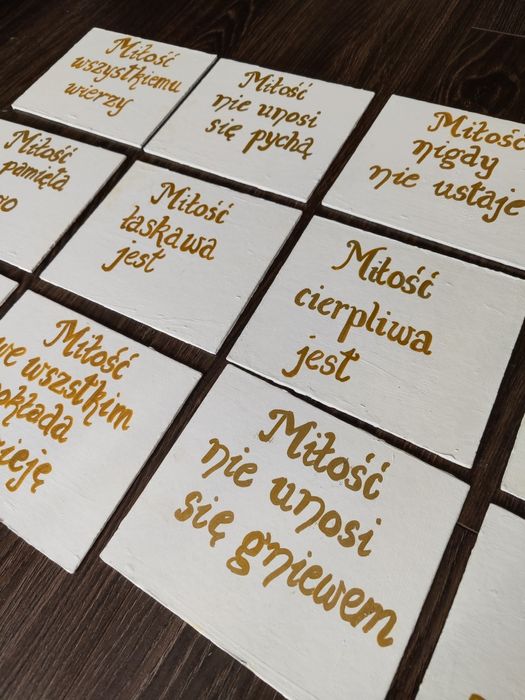 Miłość
wszystkiemu
wierzy
Miłość
nie unosi
się pychą
Miłość
nigdy
nie ustaje
Miłość
pamięta
Miłość
łaskawa
jest
Miłość
cierpliwa
jest
Miłość
we wszstkim
pokłada
Miłość
nie unosi
się gniewem